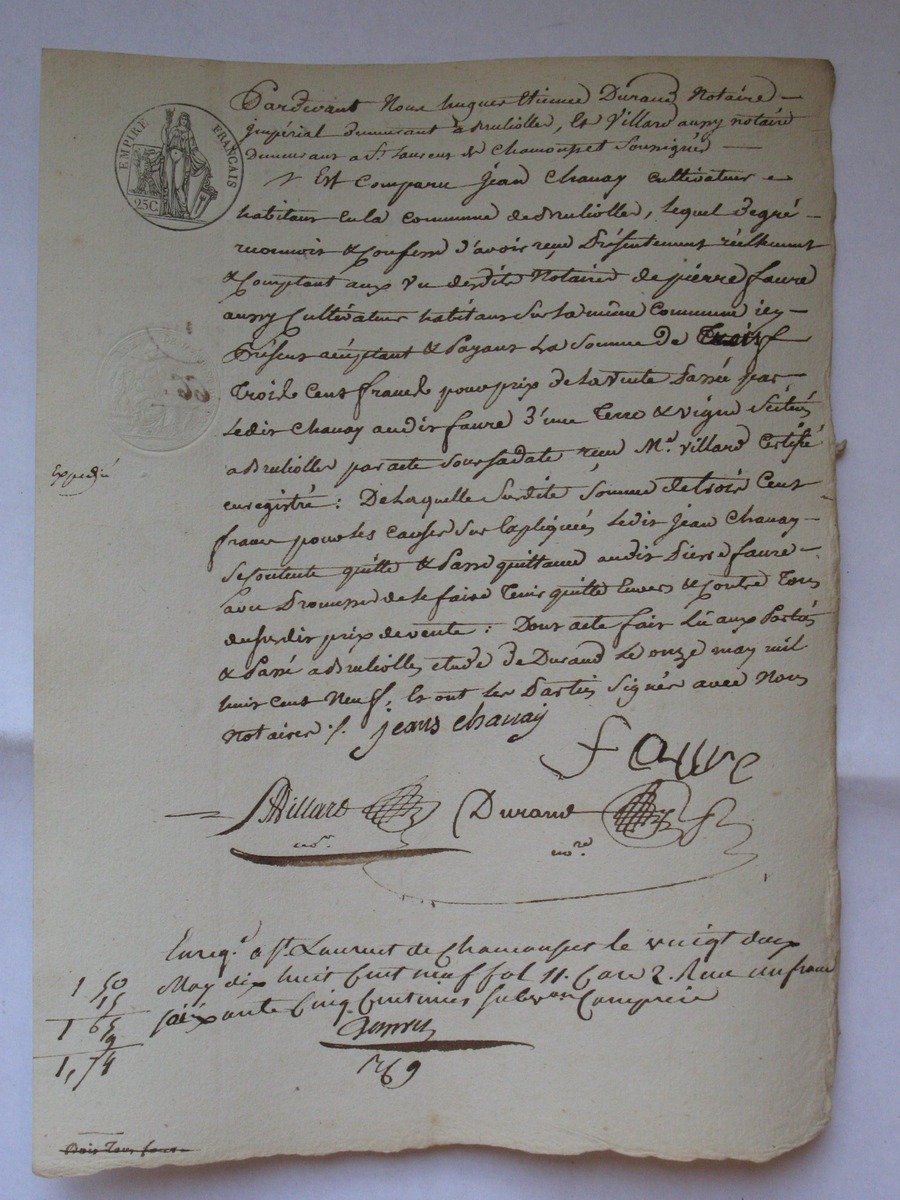 EMPIRE FRANÇAIS
25C
Pardevant Nous hugues Etienne Durand Notaire
impérial demeurant à Brullioller, Et Villard aussy notaire
Demeurant a St. Laurent de Chamousset Soussignés
Est Comparu Jean Chanay Cultivateur
habitant en la Commune de Brullioller, lequel de gré
reconnoit & Confesse d'avoir reçu Présentement réellement
& Comptant aux vu desdits Notaires de pierre faure
aussy Cultivateur habitant Sur la même Commune icy
Présent acceptant & Payant La Somme de
Trois Cent francs pour prix de La vente Passée par
Ledit Chanay audit faure d'une Terre & vigne Scituées
a Brullioller par acte Sous Sa date reçu Me. Villard Certifié
expedié
enregistré : De Laquelle Susdite Somme de trois Cent
francs pour les Causes Sus Expliquées Ledit Jean Chanay
Se Contente quitte & Passe quittance audit Pierre faure
avec Promesse de le faire Tenir quitte Envers & Contre Tous
du Susdit prix de vente : Dont acte fait Lû aux Parties
& Passé a Brulliolles etude de Durand Le onze may mil
huit Cent Neuf, Et ont Les Parties Signés avec Nous
Notaires ./. jeans chanay
Faure
Villard Durand
nore. nore.
Enreg.é a St. Laurent de Chamousset le vingt deux
May dix huit Cent neuf fol 11. Case 2. Reçu un franc
soixante Cinq Centimes Subvon Comprise
1 50
15
1 65
9
1,74
1769